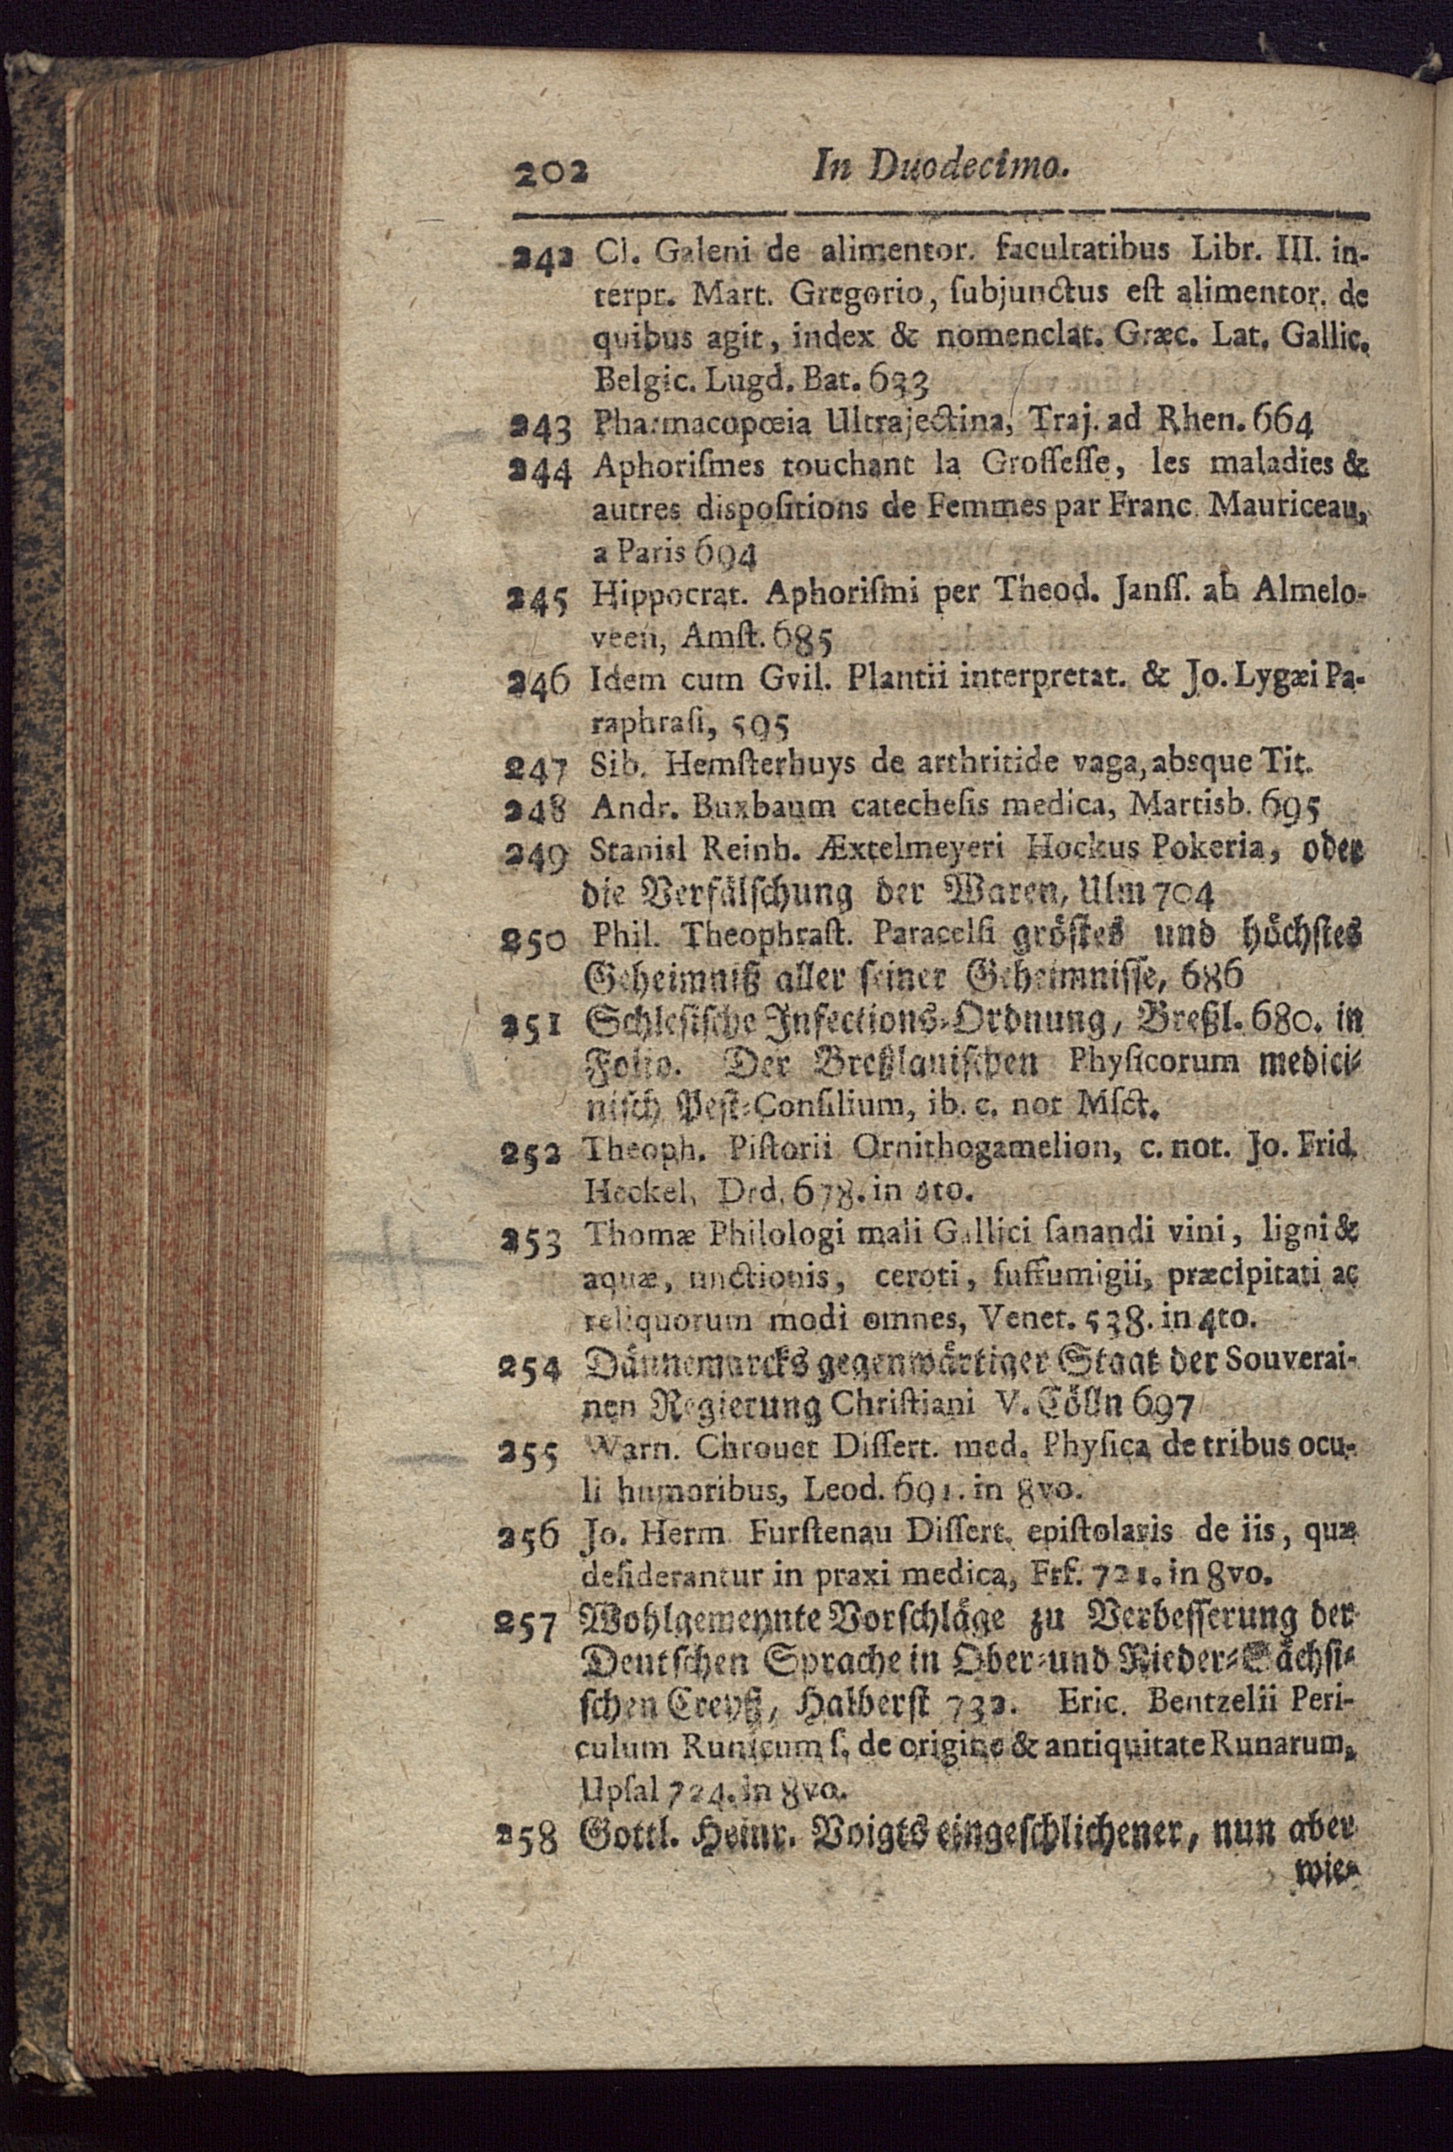 202 In Duodecimo.
242 Cl. Galeni de alimentor. facultatibus Libr. III. in-
terpr. Mart. Gregorio, ſubjunctus eſt alimentor. de
quibus agit, index & nomenclat. Græc. Lat. Gallic.
Belgic. Lugd. Bat. 633
243 Pharmacopœia Ultrajectina, Traj. ad Rhen. 664
244 Aphoriſmes touchant la Groſſeſſe, les maladies &
autres diſpoſitions de Femmes par Franc. Mauriceau,
a Paris 694
245 Hippocrat. Aphoriſmi per Theod. Janſſ. ab Almelo-
veen, Amſt. 685
246 Idem cum Gvil. Plantii interpretat. & Jo. Lygæi Pa-
raphraſi, 595
247 Sib. Hemſterhuys de arthritide vaga, absque Tit.
248 Andr. Buxbaum catecheſis medica, Martisb. 695
249 Stanisl Reinh. Æxtelmeyeri Hockus Pokeria, oder
die Verfälſchung der Waren, Ulm 704
250 Phil. Theophraſt. Paracelſi gröſtes und höchſtes
Geheimniß aller ſeiner Geheimniſſe, 686
251 Schleſiſche Infections-Ordnung, Breßl. 680. in
Folio. Der Breßlauiſchen Phyſicorum medici-
niſch Peſt-Conſilium, ib. c. not Mſct.
252 Theoph. Piſtorii Ornithogamelion, c. not. Jo. Frid.
Heckel, Drd. 678. in 4to.
253 Thomæ Philologi mali Gallici ſanandi vini, ligni &
aquæ, unctionis, ceroti, ſuffumigii, præcipitati ac
reliquorum modi omnes, Venet. 538. in 4to.
254 Dännemarcks gegenwärtiger Staat der Souverai-
nen Regierung Chriſtiani V. Cölln 697
255 Warn. Chrouet Diſſert. med. Phyſica de tribus ocu-
li humoribus, Leod. 691. in 8vo.
256 Jo. Herm. Furſtenau Diſſert. epiſtolaris de iis, quæ
deſiderantur in praxi medica, Frf. 721. in 8vo.
257 Wohlgemeynte Vorſchläge zu Verbeſſerung der
Deutſchen Sprache in Ober-und Nieder-Sächſi-
ſchen Creyß, Halberſt 732. Eric. Bentzelii Peri-
culum Runicum ſ. de origine & antiquitate Runarum,
Upſal 724. in 8vo.
258 Gottl. Heinr. Voigts eingeſchlichener, nun aber
wie-